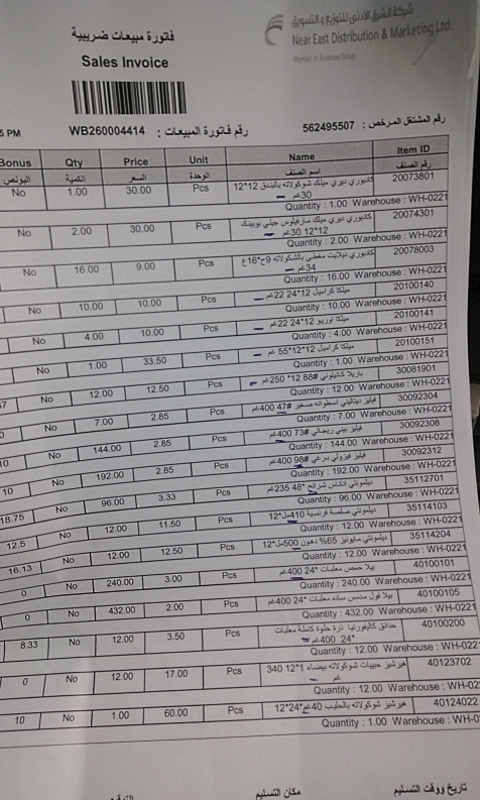 شركة الشرق الأدنى للتوزيع و التسويق
Near East Distribution & Marketing Ltd.
Member of Arabtow Group
فاتورة مبيعات ضريبية
Sales Invoice
رقم المشتغل المرخص : 562495507
رقم فاتورة المبيعات : WB260004414
5 PM
Item ID Name Unit Price Qty Bonus
رقم الصنف اسم الصنف الوحدة السعر الكمية البونص
20073801 كادبوري ديري ميلك شوكولاته بالبندق 12*12 30غم Pcs 30.00 1.00 No
Quantity : 1.00 Warehouse : WH-0221
20074301 كادبوري ديري ميلك مارفيلوس جيلي بوبينك 12*12 30غم Pcs 30.00 2.00 No
Quantity : 2.00 Warehouse : WH-0221
20078003 كادبوري ديلايت مغطى بالشكولاته 9ح*16ع 34غم Pcs 9.00 16.00 No
Quantity : 16.00 Warehouse : WH-0221
20100140 ميلكا كراميل 12*24 22غم Pcs 10.00 10.00 No
Quantity : 10.00 Warehouse : WH-0221
20100141 ميلكا اوريو 12*24 22غم Pcs 10.00 4.00 No
Quantity : 4.00 Warehouse : WH-0221
20100151 ميلكا كراميل 12*12 55غم Pcs 33.50 1.00 No
Quantity : 1.00 Warehouse : WH-0221
30081901 باريلا 88# 12* 250غم Pcs 12.50 12.00 No
Quantity : 12.00 Warehouse : WH-0221
30092304 فيليز ديتاليني اسطوانه صغير 47# 400غم Pcs 2.85 7.00 No
Quantity : 7.00 Warehouse : WH-0221
30092308 فيليز بيني ريجاتي 73# 400غم Pcs 2.85 144.00 No 10
Quantity : 144.00 Warehouse : WH-0221
30092312 فيليز فيزولي برغي 98# 400غم Pcs 2.85 192.00 No 10
Quantity : 192.00 Warehouse : WH-0221
35112701 ديلمونتي اناناس شرائح *48 235غم Pcs 3.33 96.00 No 18.75
Quantity : 96.00 Warehouse : WH-0221
35114103 ديلمونتي صلصة فرنسية 410مل*12 Pcs 11.50 12.00 No 12.5
Quantity : 12.00 Warehouse : WH-0221
35114204 ديلمونتي مايونيز 65% دهون 500مل*12 Pcs 12.50 12.00 No 16.13
Quantity : 12.00 Warehouse : WH-0221
40100101 بيلا حمص معلبات *24 400غم Pcs 3.00 240.00 No 0
Quantity : 240.00 Warehouse : WH-0221
40100105 بيلا فول مدمس ساده معلبات *24 400غم Pcs 2.00 432.00 No 0
Quantity : 432.00 Warehouse : WH-0221
40100200 حدائق كاليفورنيا ذرة حلوة كاملة معلبات *24 400غم Pcs 3.50 12.00 No 8.33
Quantity : 12.00 Warehouse : WH-0221
40123702 هيرشيز حبيبات شوكولاته بيضاء 1*12 340 غم Pcs 17.00 12.00 No 0
Quantity : 12.00 Warehouse : WH-022
40124022 هيرشيز شوكولاته بالحليب 40غم*24*12 Pcs 60.00 1.00 No 10
Quantity : 1.00 Warehouse : WH-02
تاريخ ووقت التسليم مكان التسليم